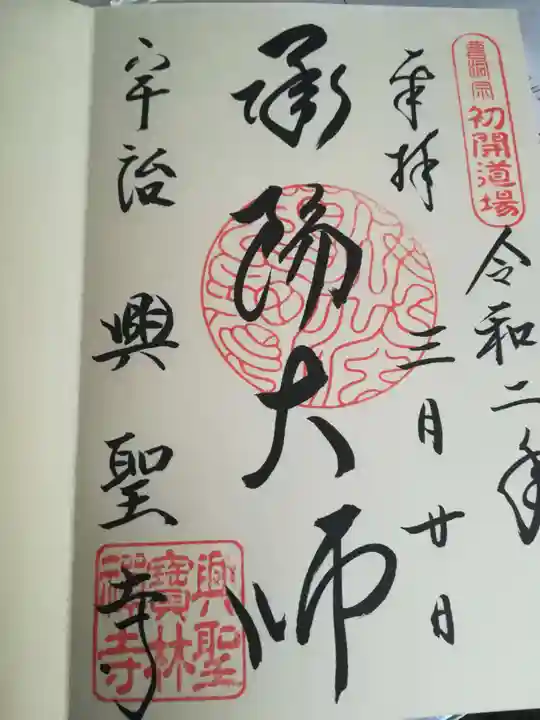 曹洞宗 初開道場
令和二年
奉拝
三月廿日
承陽大師
宇治 興聖寺
興聖
寶林
禅寺